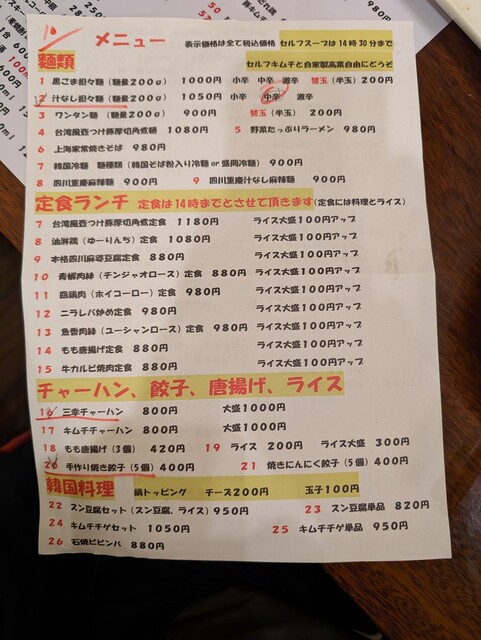 メニュー 表示価格は全て税込価格 セルフスープは14時30分まで
麺類 セルフキムチと自家製高菜自由にどうぞ
1 黒ごま担々麺(麺量200g) 1000円 小辛 中辛 激辛 替玉(半玉)200円
2 汁なし担々麺(麺量200g) 1050円 小辛 中辛 激辛
3 ワンタン麺 (麺量200g) 900円 替玉(半玉)200円
4 台湾風壺つけ豚厚切角煮麺 1080円 5 野菜たっぷりラーメン 980円
6 上海家常焼きそば 980円
7 韓国冷麺 麺種類(韓国そば粉入り冷麺 or 盛岡冷麺) 900円
8 四川重慶麻辣麺 900円 9 四川重慶汁なし麻辣麺 900円
定食ランチ 定食は14時までとさせて頂きます(定食には料理とライス)
7 台湾風壺つけ豚厚切角煮定食 1180円 ライス大盛100円アップ
8 油淋鶏(ゆーりんち)定食 1080円 ライス大盛100円アップ
9 本格四川麻婆豆腐定食 880円 ライス大盛100円アップ
10 青椒肉絲(チンジャオロース)定食 880円 ライス大盛100円アップ
11 回鍋肉(ホイコーロー)定食 980円 ライス大盛100円アップ
12 ニラレバ炒め定食 980円 ライス大盛100円アップ
13 魚香肉絲(ユーシャンロース)定食 980円 ライス大盛100円アップ
14 もも唐揚げ定食 880円 ライス大盛100円アップ
15 牛カルビ焼肉定食 880円 ライス大盛100円アップ
チャーハン、餃子、唐揚げ、ライス
16 三幸チャーハン 800円 大盛1000円
17 キムチチャーハン 800円 大盛1000円
18 もも唐揚げ(3個) 420円 19 ライス 200円 ライス大盛 300円
20 手作り焼き餃子(5個)400円 21 焼きにんにく餃子(5個)400円
韓国料理 鍋トッピング チーズ200円 玉子100円
22 スン豆腐セット(スン豆腐、ライス)950円 23 スン豆腐単品 820円
24 キムチチゲセット 1050円 25 キムチチゲ単品 950円
26 石焼ビビンバ 880円